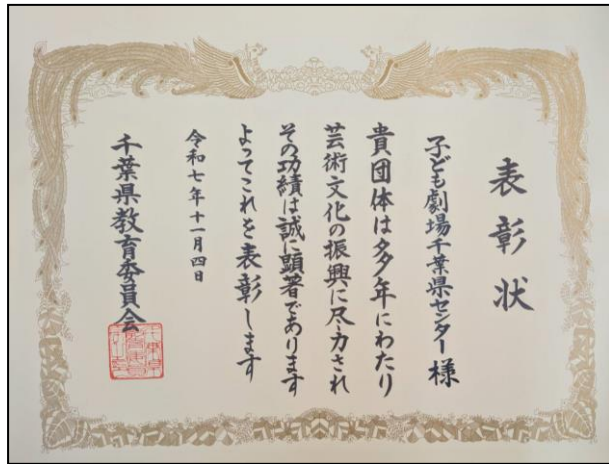 表彰状
子ども劇場千葉県センター様
貴団体は多年にわたり
芸術文化の振興に尽力され
その功績は誠に顕著であります
よってこれを表彰します
令和七年十一月四日
千葉県教育委員会